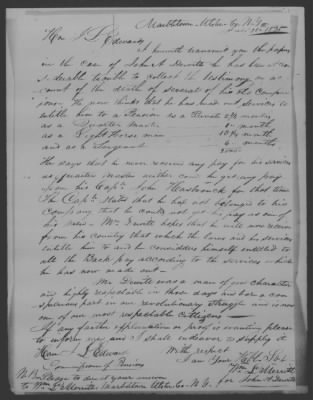 Marbletown Ulster Co N.Y.
Hon J L Edwards
I herewith transmit you the papers
in the case of John A. Dewitt he has been at con
siderable trouble to collect the testimony on ac
count of the death of several of his old Compan
ions. He now thinks that he has made out services to
entitle him to a Pension as a Private 2 months
as a Quarter Master months
as a Light Horse man months
and as a Sergeant 6 months
He says that he never received any pay for his services
as Quarter Master neither could he get any pay
from his Capt. John Hasbrouck for that time
The Capt. States that he had not belonged to his
Company that he could not get his pay as one of
his men. Mr Dewitt hopes that he will now receive
from his country that which the laws and his services
entitle him to and he considers himself entitled to
all the Back pay according to the services which
he has now made out
Mr Dewitt was a man of character
and highly respectable in those days and bore a con
spicuous part in our revolutionary struggle and is now
one of our most respectable citizens
If any further explanation or proof is wanting please
to inform me and I shall endeavor to supply it
Hon. J L Edwards With respect
Commissioner of Pensions I am Your
Wm
N.B. Please to direct your answer for John A Dewitt
to Wm Marbletown Ulster Co. N.Y.